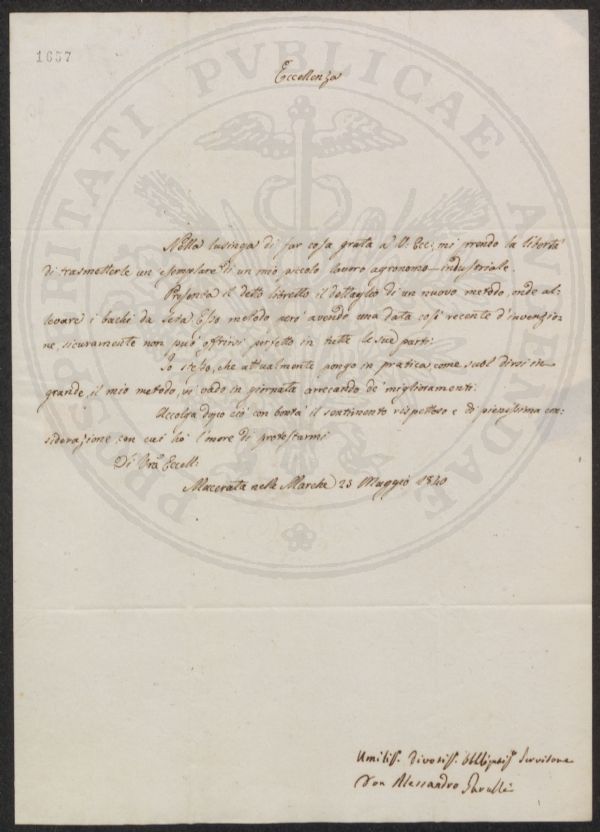 1657
Eccellenza
Nella lusinga di far cosa grata a V: Ecc: mi prendo la libertà
di trasmetterle un esemplare di un mio piccolo lavoro agronomo-industriale.
Presenta il detto libretto il dettaglio di un nuovo metodo, onde al-
levare i bachi da seta. Esso metodo però avendo una data così recente d'invenzio-
ne, sicuramente non può offrirsi perfetto in tutte le sue parti:
Io stesso, che attualmente pongo in pratica, come suol dirsi in
grande, il mio metodo, vi vado in giornata arrecando de' miglioramenti:
Accolga dopo ciò con bontà il sentimento rispettoso e di pienissima con:
siderazione, con cui ho l'onore di protestarmi
Di Vra Eccell:
Macerata nelle Marche 23 Maggio 1840
Umiliss. Divotiss. Obbligatiss Servitore
Don Alessandro
PROSPERITATI PVBLICAE AVGENDAE